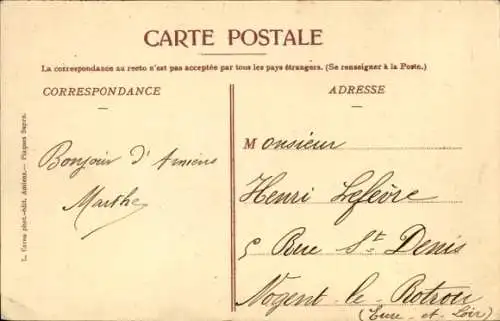 CARTE POSTALE
La correspondance au recto n'est pas acceptée par tous les pays étrangers. (Se renseigner à la Poste.)
CORRESPONDANCE
ADRESSE
Bonjour d'Amiens
Marthe
Monsieur
Henri Lefèvre
5 Rue St Denis
Nogent-le-Rotrou
(Eure-et-Loir)
L. Caron phot.-édit. Amiens.— Plaques Sapra.